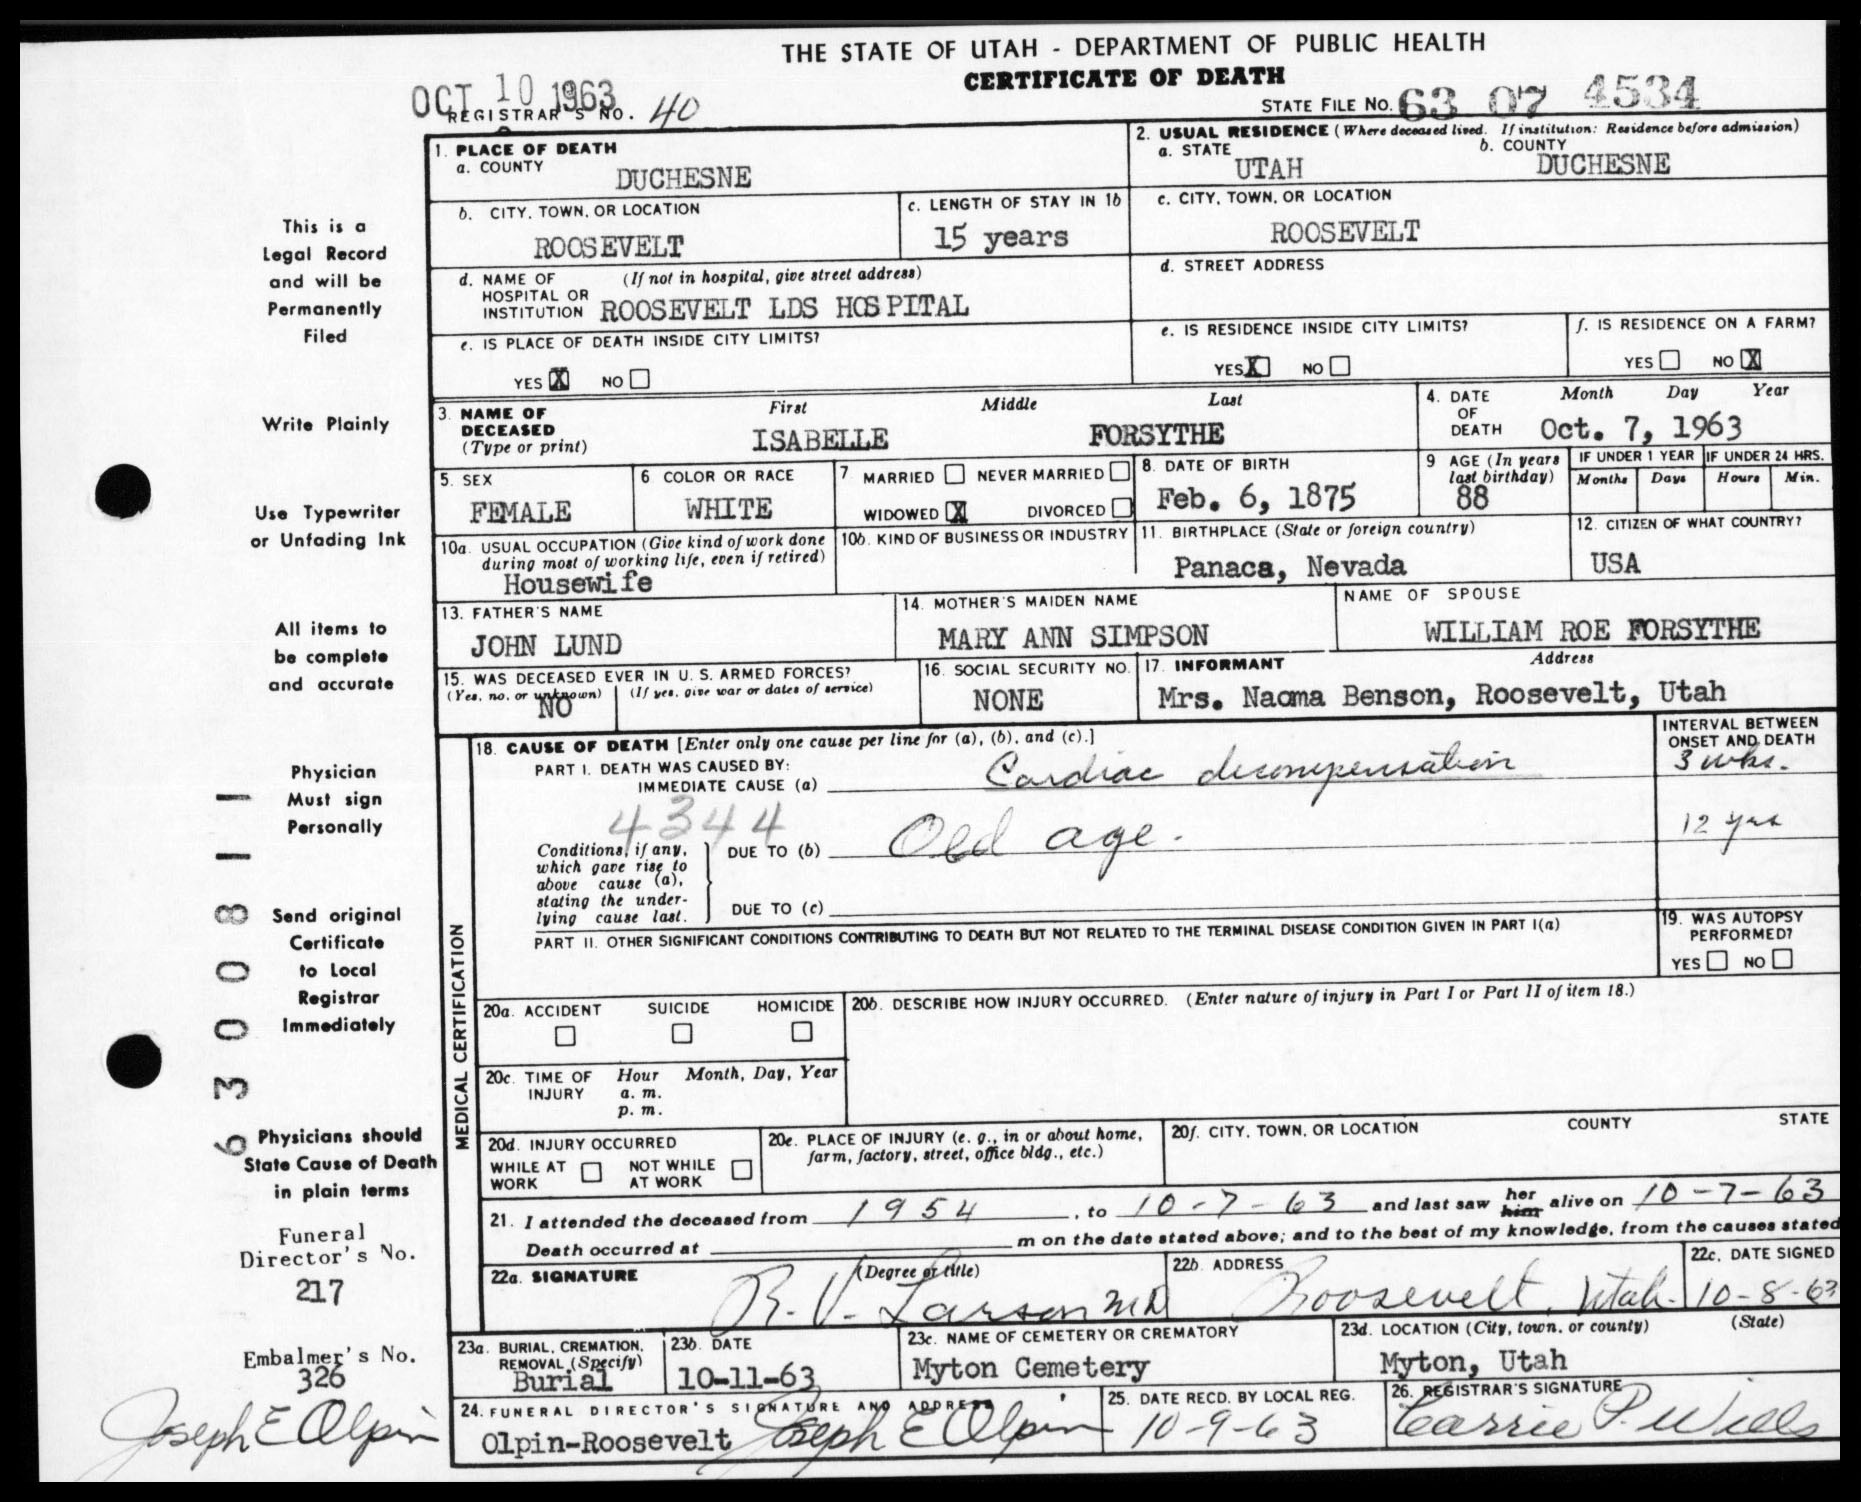 THE STATE OF UTAH - DEPARTMENT OF PUBLIC HEALTH
CERTIFICATE OF DEATH
OCT 10 1963
REGISTRAR'S NO. 40
STATE FILE NO. 63 07 4534
1. PLACE OF DEATH
a. COUNTY
DUCHESNE
2. USUAL RESIDENCE (Where deceased lived. If institution: Residence before admission)
a. STATE b. COUNTY
UTAH DUCHESNE
b. CITY, TOWN, OR LOCATION
ROOSEVELT
c. LENGTH OF STAY IN 1b
15 years
c. CITY, TOWN, OR LOCATION
ROOSEVELT
d. NAME OF HOSPITAL OR INSTITUTION (If not in hospital, give street address)
ROOSEVELT LDS HOSPITAL
d. STREET ADDRESS
e. IS PLACE OF DEATH INSIDE CITY LIMITS?
YES X NO
e. IS RESIDENCE INSIDE CITY LIMITS?
YES X NO
f. IS RESIDENCE ON A FARM?
YES NO X
3. NAME OF DECEASED (Type or print)
First Middle Last
ISABELLE FORSYTHE
4. DATE OF DEATH
Month Day Year
Oct. 7, 1963
5. SEX
FEMALE
6 COLOR OR RACE
WHITE
7 MARRIED NEVER MARRIED
WIDOWED X DIVORCED
8. DATE OF BIRTH
Feb. 6, 1875
9 AGE (In years last birthday)
88
IF UNDER 1 YEAR
Months Days
IF UNDER 24 HRS.
Hours Min.
10a. USUAL OCCUPATION (Give kind of work done during most of working life, even if retired)
Housewife
10b. KIND OF BUSINESS OR INDUSTRY
11. BIRTHPLACE (State or foreign country)
Panaca, Nevada
12. CITIZEN OF WHAT COUNTRY?
USA
13. FATHER'S NAME
JOHN LUND
14. MOTHER'S MAIDEN NAME
MARY ANN SIMPSON
NAME OF SPOUSE
WILLIAM ROE FORSYTHE
15. WAS DECEASED EVER IN U. S. ARMED FORCES?
(Yes, no, or unknown) (If yes, give war or dates of service)
NO
16. SOCIAL SECURITY NO.
NONE
17. INFORMANT Address
Mrs. Naoma Benson, Roosevelt, Utah
MEDICAL CERTIFICATION
18. CAUSE OF DEATH [Enter only one cause per line for (a), (b), and (c).]
INTERVAL BETWEEN ONSET AND DEATH
PART I. DEATH WAS CAUSED BY:
IMMEDIATE CAUSE (a) Cardiac decompensation 3 wks.
4344
Conditions, if any, which gave rise to above cause (a), stating the underlying cause last.
DUE TO (b) Old age. 12 yrs
DUE TO (c)
PART II. OTHER SIGNIFICANT CONDITIONS CONTRIBUTING TO DEATH BUT NOT RELATED TO THE TERMINAL DISEASE CONDITION GIVEN IN PART I(a)
19. WAS AUTOPSY PERFORMED?
YES NO
20a. ACCIDENT SUICIDE HOMICIDE
20b. DESCRIBE HOW INJURY OCCURRED. (Enter nature of injury in Part I or Part II of item 18.)
20c. TIME OF INJURY Hour Month, Day, Year
a. m.
p. m.
20d. INJURY OCCURRED
WHILE AT WORK NOT WHILE AT WORK
20e. PLACE OF INJURY (e. g., in or about home, farm, factory, street, office bldg., etc.)
20f. CITY, TOWN, OR LOCATION COUNTY STATE
21. I attended the deceased from 1954, to 10-7-63 and last saw her him alive on 10-7-63
Death occurred at m on the date stated above; and to the best of my knowledge, from the causes stated
22a. SIGNATURE (Degree or title)
R. V. Larson MD
22b. ADDRESS
Roosevelt, Utah.
22c. DATE SIGNED
10-8-63
23a. BURIAL, CREMATION, REMOVAL (Specify)
Burial
23b. DATE
10-11-63
23c. NAME OF CEMETERY OR CREMATORY
Myton Cemetery
23d. LOCATION (City, town, or county) (State)
Myton, Utah
24. FUNERAL DIRECTOR'S SIGNATURE AND ADDRESS
Olpin-Roosevelt Joseph E Olpin
25. DATE RECD. BY LOCAL REG.
10-9-63
26. REGISTRAR'S SIGNATURE
Carrie P. Wills
This is a
Legal Record
and will be
Permanently
Filed
Write Plainly
Use Typewriter
or Unfading Ink
All items to
be complete
and accurate
Physician
Must sign
Personally
Send original
Certificate
to Local
Registrar
Immediately
Physicians should
State Cause of Death
in plain terms
Funeral
Director's No.
217
Embalmer's No.
326
Joseph E Olpin
6300811